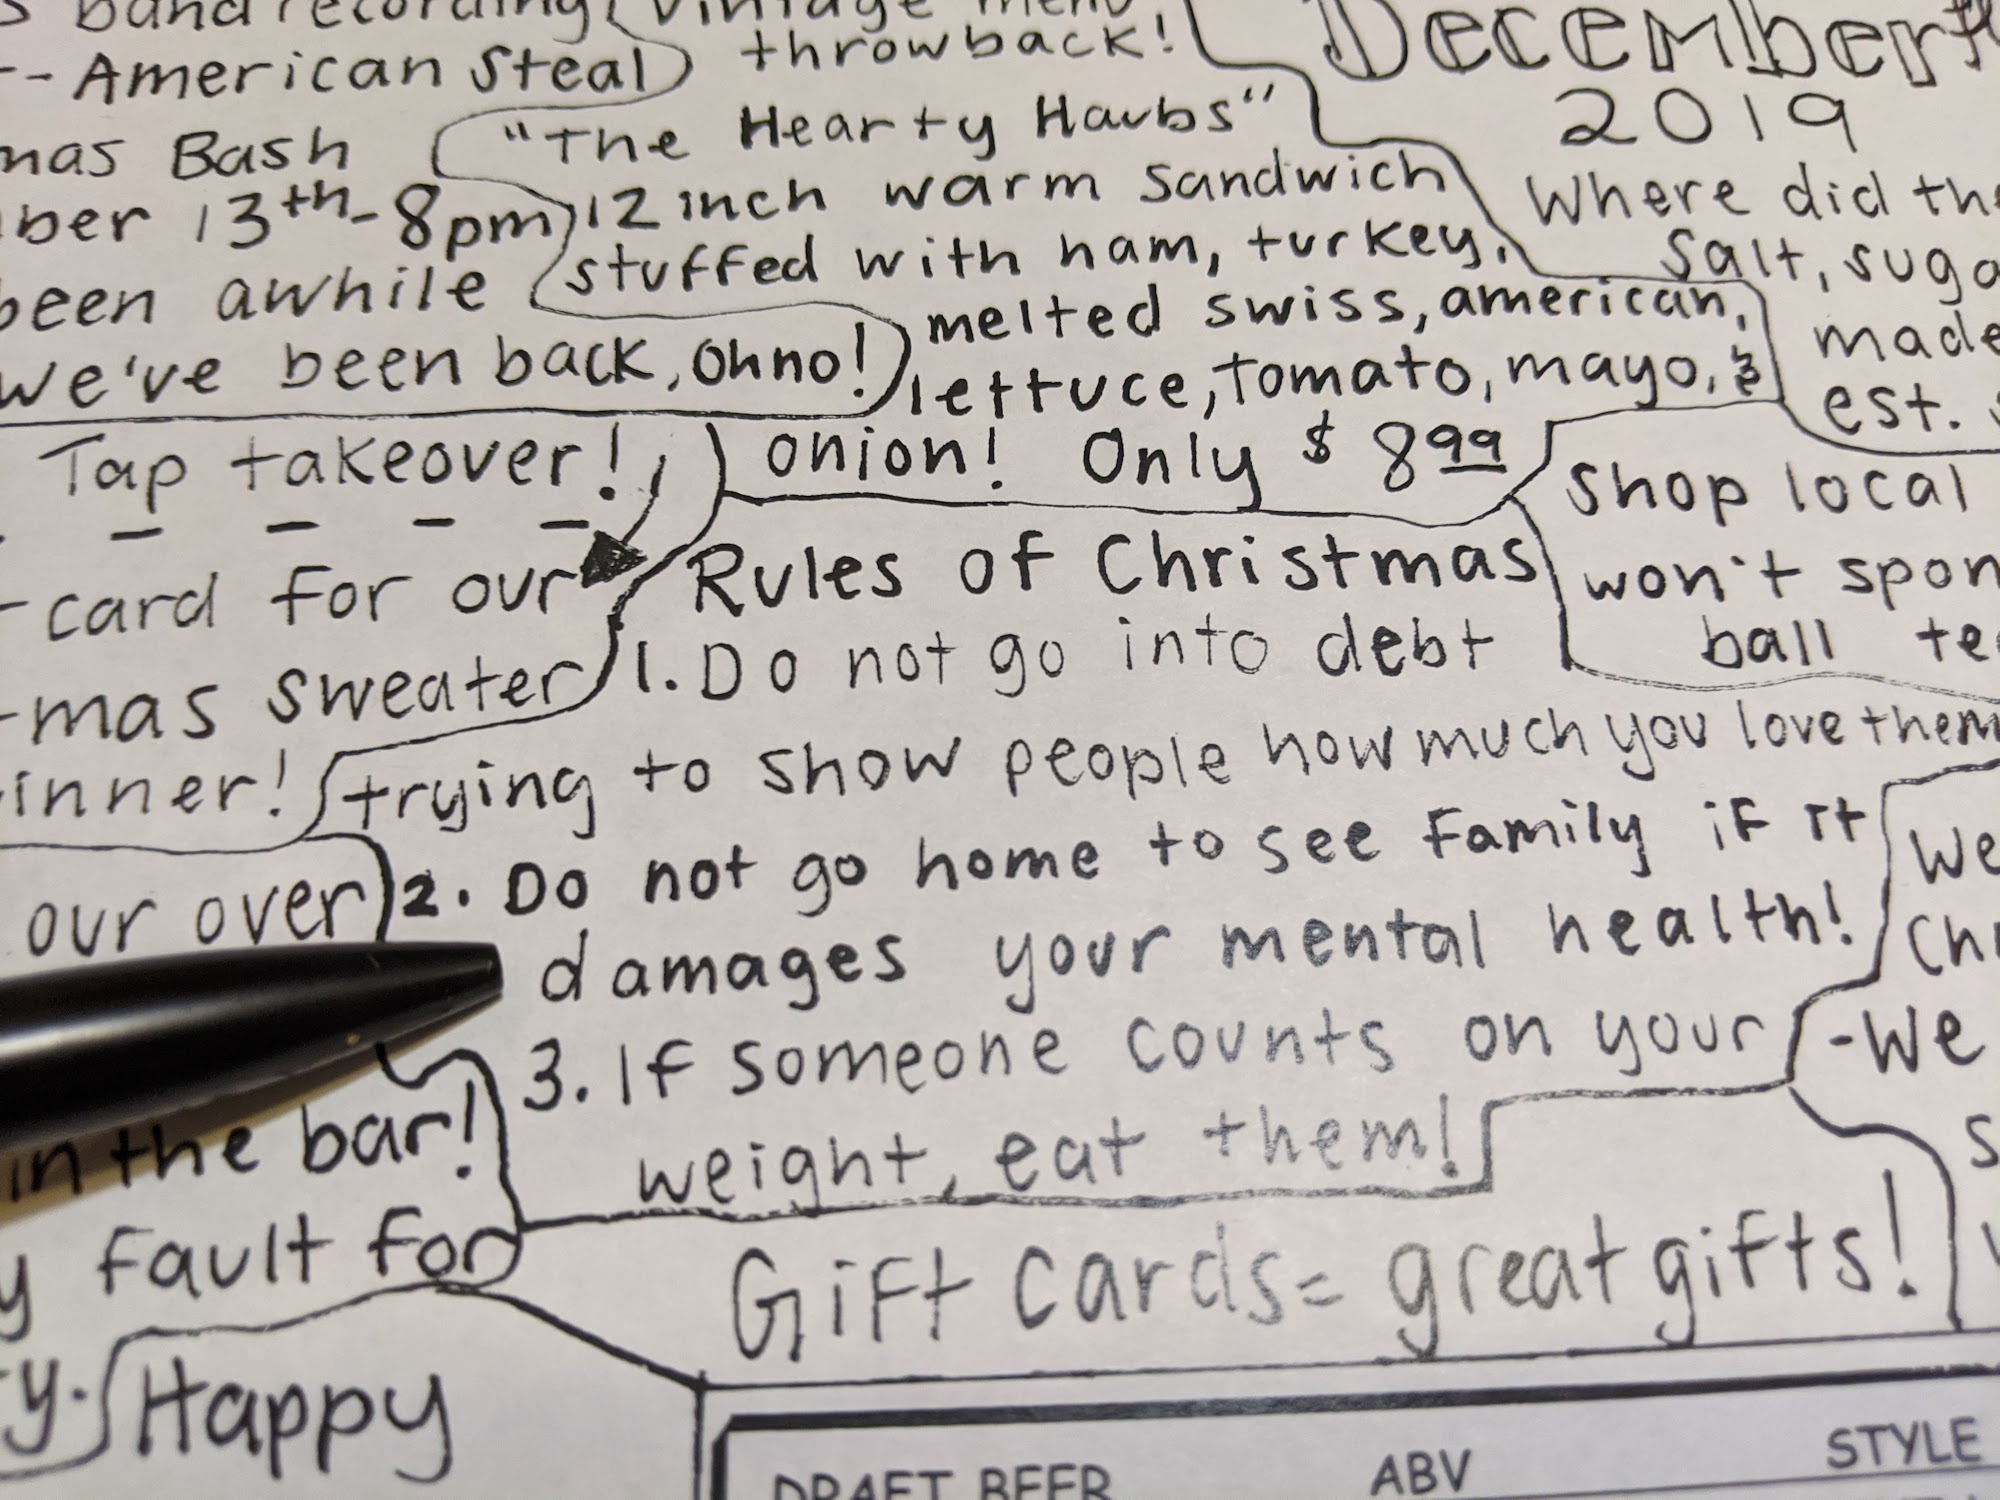 band recording
--American Steal
mas Bash
ber 13th-8pm
been awhile
we've been back, ohno!
vintage menu
throwback!
"The Hearty Haubs"
12 inch warm sandwich
stuffed with ham, turkey,
melted swiss, american,
lettuce, tomato, mayo, &
onion! Only $8.99
December
2019
Where did the
salt, suga
made
est.
Tap takeover!
-card for our
-mas sweater
inner!
Shop local
won't spon
ball te
Rules of Christmas
1. Do not go into debt
trying to show people how much you love them
2. Do not go home to see Family if it
damages your mental health!
3. If someone counts on your
weight, eat them!
our over
in the bar!
y fault for
y.
Happy
We
Chr
-We
s
Gift cards= great gifts!
DRAFT BEER ABV STYLE